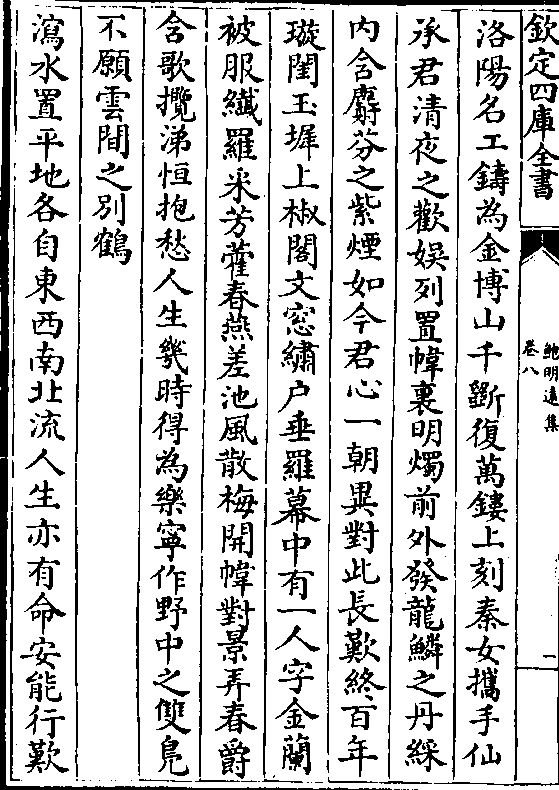 欽定四庫全書
鮑明遠集
卷八
一
洛陽名工鑄為金博山千斵復萬鏤上刻秦女攜手仙
承君清夜之歡娛列置幃裏明燭前外發龍鱗之丹綵
内含麝芬之紫煙如今君心一朝異對此長歎終百年
璇閨玉墀上椒閣文窓繡户垂羅幕中有一人字金蘭
被服纖羅米芳藿春燕差池風散梅開幃對景弄春爵
含歌攬涕恒抱愁人生幾時得為樂寧作野中之雙鳬
不願雲間之别鶴
瀉水置平地各自東西南北流人生亦有命安能行歎